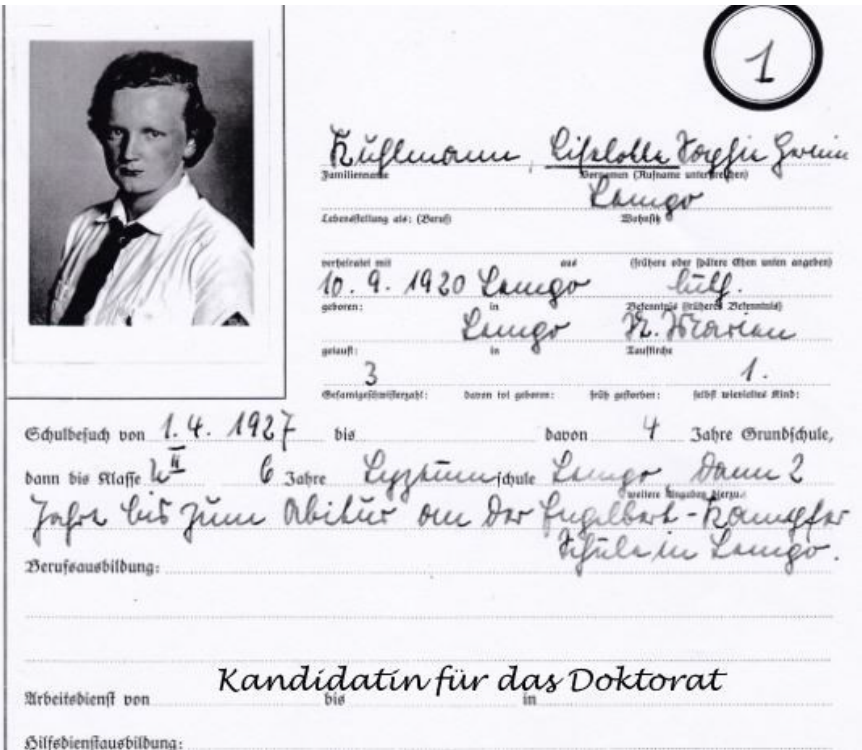 1
Kuhlmann, Liselotte Sophie
Familienname Vornamen (Rufname unterstreichen)
Lemgo
Lebensstellung als: (Beruf) Wohnsitz
verheiratet mit aus (frühere oder spätere Ehen unten angeben)
10. 9. 1920 Lemgo luth.
geboren: in Bekenntnis (früheres Bekenntnis)
Lemgo St. Marien
getauft: in Taufkirche
3 1.
Gesamtgeschwisterzahl: davon tot geboren: früh gestorben: selbst wievieltes Kind:
Schulbesuch von 1. 4. 1927 bis davon 4 Jahre Grundschule,
dann bis Klasse II 6 Jahre Lyzeum schule Lemgo dann 2
weitere Angaben hierzu:
Jahre bis zum Abitur an der Engelbert-Kämpfer
Schule in Lemgo.
Berufsausbildung:
Kandidatin für das Doktorat
Arbeitsdienst von bis in
Hilfsdienstausbildung: